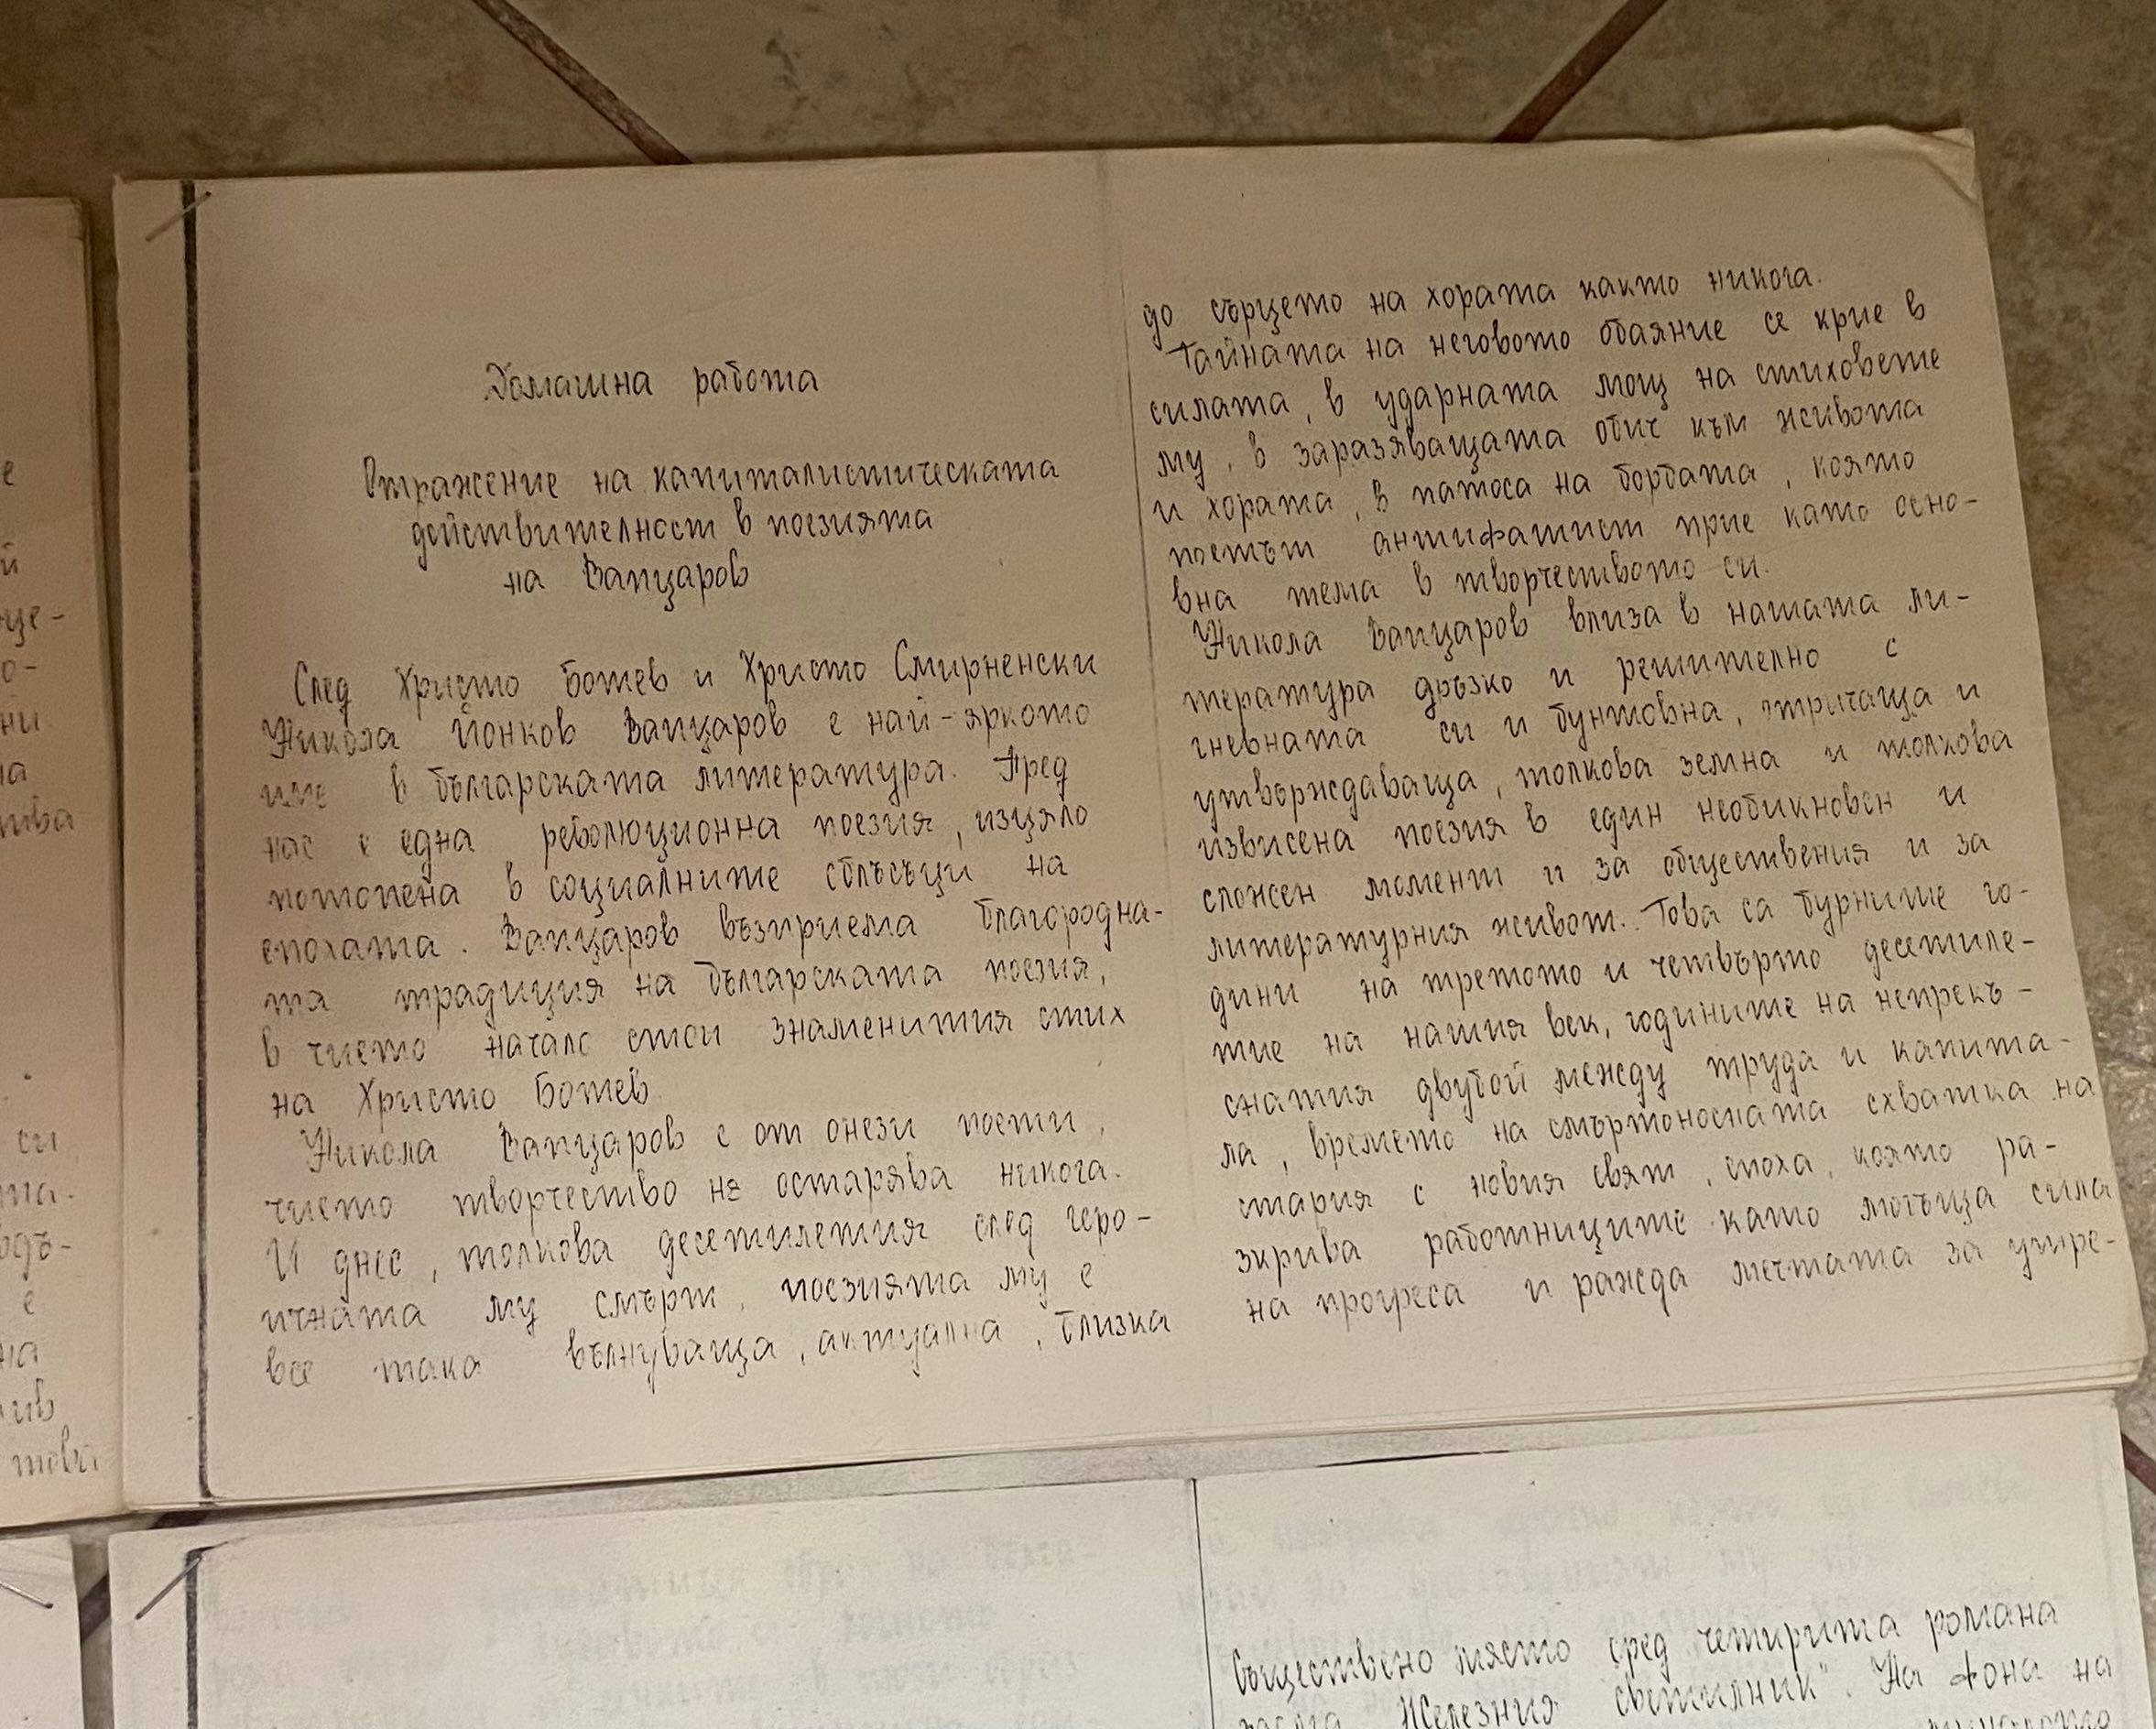 Домашна работа
Отражение на капиталистическата
действителност в поезията
на Вапцаров
След Христо Ботев и Христо Смирненски
Никола Йонков Вапцаров е най-яркото
име в българската литература. Пред
нас е една революционна поезия, изцяло
потопена в социалните сблъсъци на
епохата. Вапцаров възприема благородна-
та традиция на българската поезия,
в чието начало стои знаменития стих
на Христо Ботев
Никола Вапцаров е от онези поети,
чието творчество не остарява никога.
И днес, толкова десетилетия след геро-
ичната му смърт, поезията му е
все така вълнуваща, актуална, близка
до сърцето на хората както никога.
Тайната на неговото обаяние се крие в
силата, в ударната мощ на стиховете
му, в заразяващата обич към живота
и хората, в патоса на борбата, която
поетът антифашист прие като осно-
вна тема в творчеството си.
Никола Вапцаров влиза в нашата ли-
тература дръзко и решително с
гневната си и бунтовна, отричаща и
утвърждаваща, толкова земна и толкова
извисена поезия в един необикновен и
сложен момент и за обществения и за
литературния живот. Това са бурните го-
дини на третото и четвърто десетиле-
тие на нашия век, годините на непрекъ-
снатия двубой между труда и капита-
ла, времето на смъртоносната схватка на
стария с новия свят, епоха, която ра-
зкрива работниците като могъща сила
на прогреса и ражда мечтата за утре-
е
й
це-
о-
ни
ла
тва
си
та.
одъ-
е
на
ив
Съществено място сред четирите романа
Железния светилник". На фона на